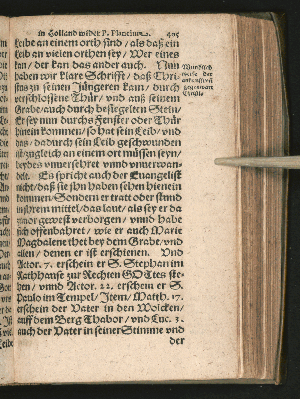 in Holland wider P. Plancium. 405
Leibe an einem orth sind/ als daß ein
Leib an vielen orthen sey/ Wer eines
kan/ der kan das ander auch. Nun
haben wir klare Schrifft/ daß Chri-
stus zu seinen Jüngeren kam/ durch
verschlossene Thür/ und auß seinem
Grabe/ auch durch besiegelten Stein/
Er sey nun durchs Fenster oder Thür
hinein kommen/ so hat sein Leib/ und
das/ dadurch sein Leib geschwunden
ist/ zugleich an einem ort müssen seyn/
beydes unversehret unnd unverwan-
delt. Es spricht auch der Evangelist
nicht/ daß sie ihn haben sehen hienein
kommen/ Sondern er tratt oder stund
in ihrem mittel/ das laut/ als sey er da
zuvor gewest verborgen/ unnd habe
sich offenbahret/ wie er auch Marie
Magdalene thet bey dem Grabe/ und
allen/ denen er ist erschienen. Und
Actor. 7. erschein er S. Stephan im
Rathhause zur Rechten GOttes ste-
hen/ unnd Actor. 22. erschein er S.
Paulo im Tempel/ Item/ Matth. 17.
erschein der Vater in den Wolcken/
auff dem Berg Thabor/ und Luc. 3.
auch der Vater in seiner Stimme und
der
gegenwart
Christi